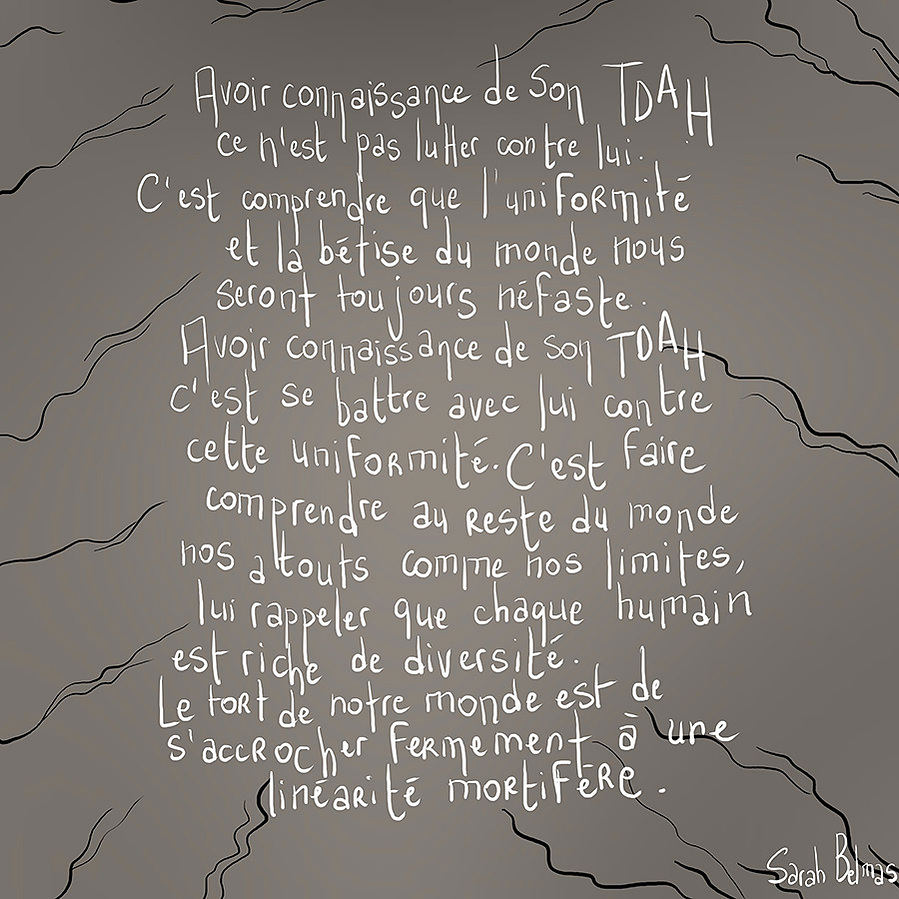 Avoir connaissance de son TDAH
ce n'est pas lutter contre lui.
C'est comprendre que l'uniformité
et la bêtise du monde nous
seront toujours néfaste.
Avoir connaissance de son TDAH
c'est se battre avec lui contre
cette uniformité. C'est faire
comprendre au reste du monde
nos atouts comme nos limites,
lui rappeler que chaque humain
est riche de diversité.
Le tort de notre monde est de
s'accrocher fermement à une
linéarité mortifère.
Sarah Belmas